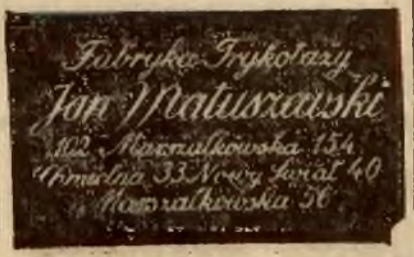 Fabryka Trykotaży
Jan Matuszewski
102 Marszałkowska 154
Chmielna 33 Nowy Świat 40
Marszałkowska 56